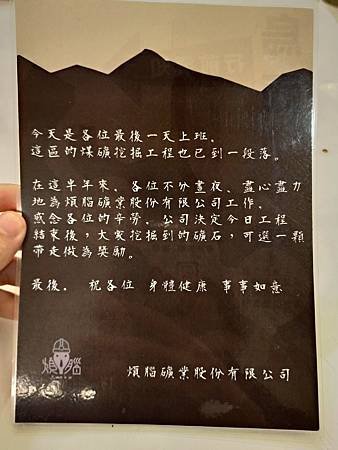 今天是各位最後一天上班.
這區的煤礦挖掘工程也已到一段落。
在這半年來、各位不分晝夜、盡心盡力
地為煩腦礦業股份有限公司工作.
感念各位的辛勞、公司決定今日工程
結束後，大家挖掘到的礦石，可選一顆
帶走做為獎勵。
最後. 祝各位 身體健康 事事如意
煩腦
煩腦礦業股份有限公司